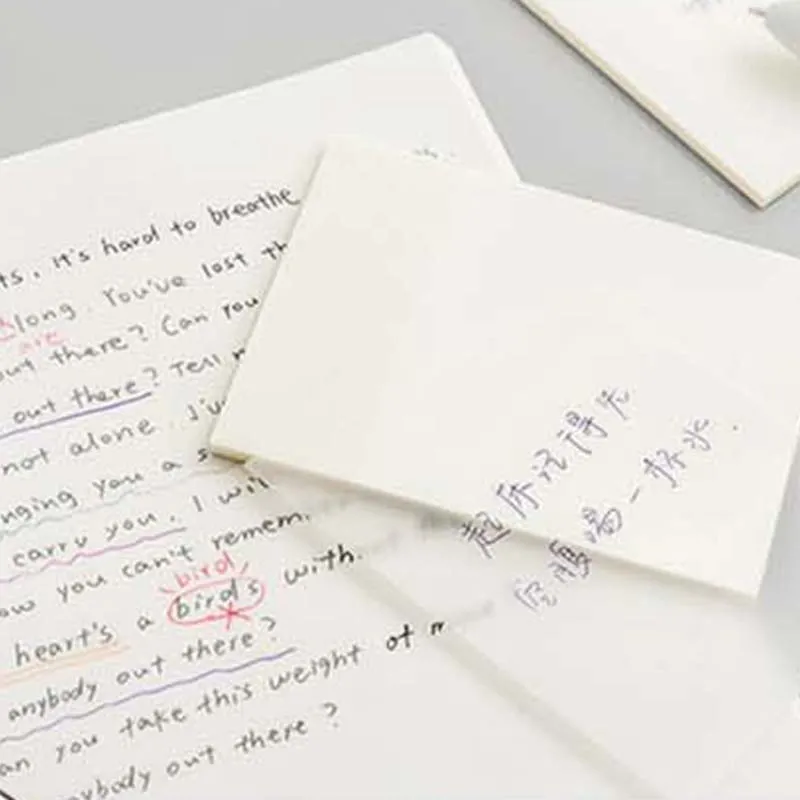 ts, it's hard to breathe
long. You've lost th
are
out there? Can you
out there? Tell m
not alone. I'v
nging you a s
carry you. I wil
ow you can't remem.
bird
heart's a birds with.
anybody out there?
an you take this weight of m
nybody out there?
起床记得先
空腹喝一杯水.